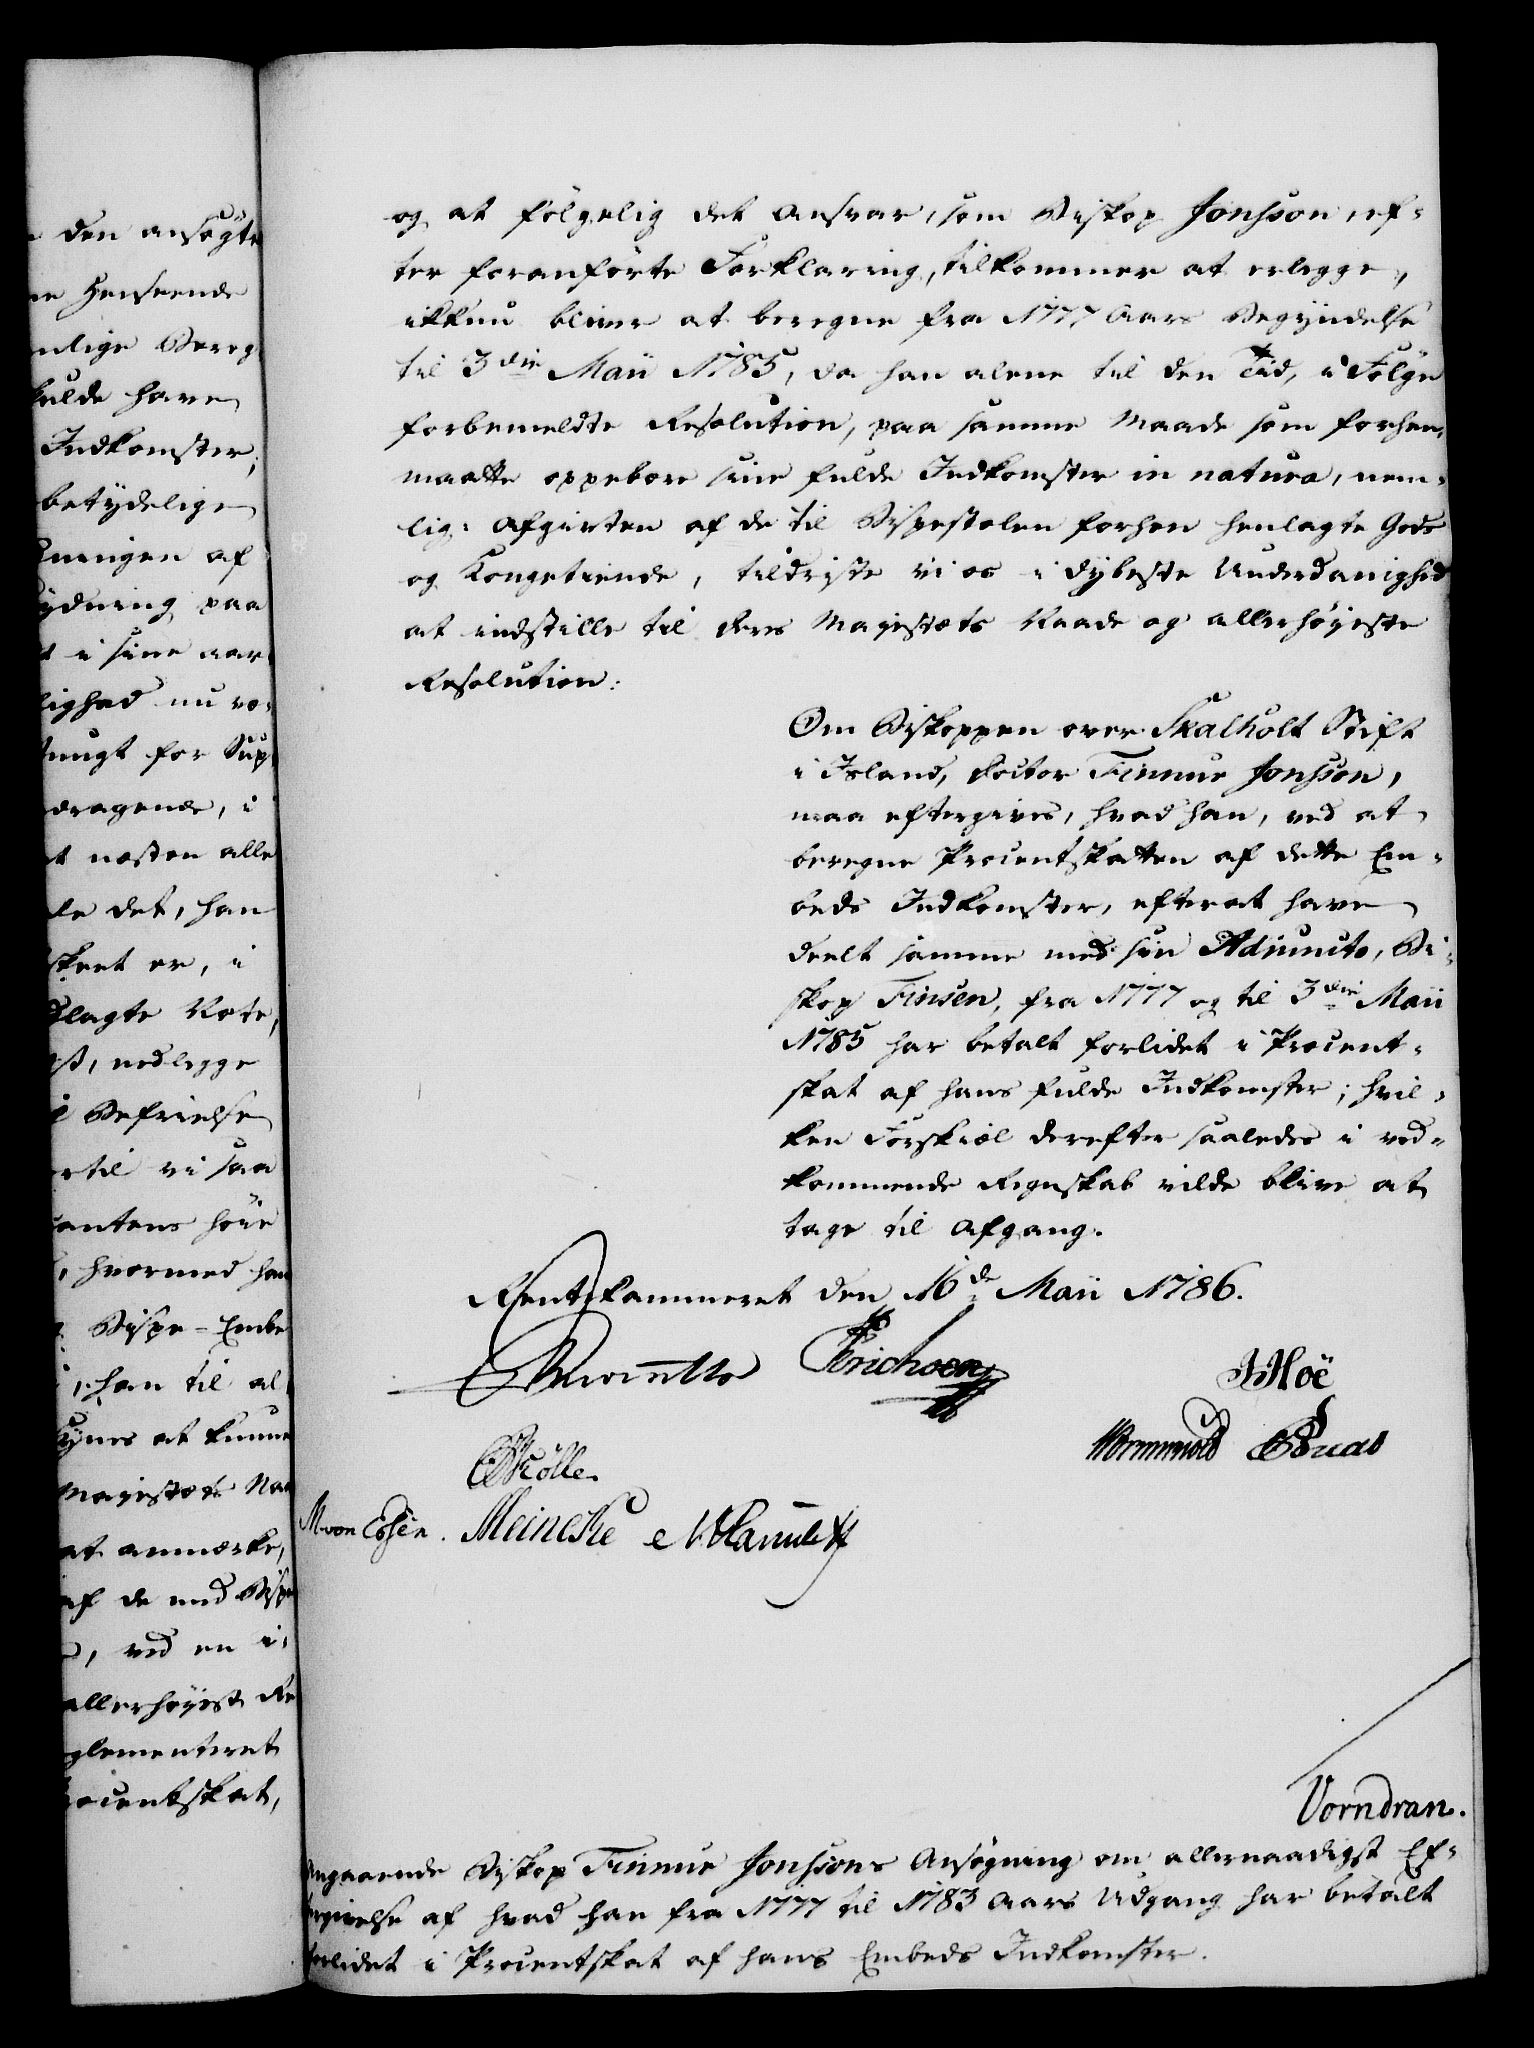 den ansøgte
Henseende
Bereg
skulde have
Indkomster;
betydelige
af
paa
i sine aar
lighed nu
for Sup
dragende, i
næsten alle
det, han
skeet er, i
lagte Note,
nedlegge
Befrielse
til vi saa
høie
hvormed han
Bispe-Embe
han til al
Synes at kunne
Majestæts Naa
at anmærke,
af de med Bispe
ved en
allerhøyest Re
glementeret
Procentskat,
og at følgelig det Ansvar, som Biskop Jonsson, ef-
ter foranførte Forklaring, tilkommer at erlegge,
ikkun bliver at beregne fra 1777 Aars Begyndelse
til 3die Maii 1785, da han alene til den Tid, i Følge
forbemeldte Resolution, paa samme Maade som forhen,
maatte oppebære sine fulde Indkomster in natura, nem-
lig: Afgivten af de til Bispestolen forhen henlagte Gods
og Kongetiende, tildriste vi os i dybeste Underdanighed
at indstille til Deres Majestæts Naade og allerhøyeste
Resolution:
Om Biskoppen over Skalholt Stift
i Island, Doctor Finnur Jonsson,
maa eftergives, hvad han, ved at
beregne Procentskatten af dette Em-
beds Indkomster, efter at have
deelt samme med sin Adjuncto, Bi-
skop Finsen, fra 1777 og til 3die Maii
1785 har betalt forlidet i Procent-
skat af hans fulde Indkomster; hvil-
ken Forskiæl derefter saaledes i ved-
kommende Regnskab vilde blive at
tage til Afgang.
Rentekammeret den 16de Maii 1786.
Erichsen
Hoë
Wormskiold
Kölle.
M. von Essen. Meincke
Vorndran.
Angaaende Biskop Finnur Jonssons Ansøgning om allernaadigst Ef-
tergivelse af hvad han fra 1777 til 1783 Aars Udgang har betalt
forlidet i Procentskat af hans Embeds Indkomster.